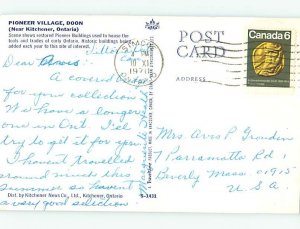 PIONEER VILLAGE, DOON
(Near Kitchener, Ontario)
Scene shows restored Pioneer Buildings used to house the
tools and trades of early Ontario. Historic buildings being
added each year to this site of interest.
POST
CARD
ADDRESS
Canada 6
Dear
A covered
for your collection
We have a longer
one in Ont I'll
try to get it for you
I havent travelled
around much this
summer so havent
a very good selection
Mrs Avis P.
7 Parramatta Rd
Beverly Mass 01915
U.S.A.
Dist. by Kitchener News Co., Ltd., Kitchener, Ontario